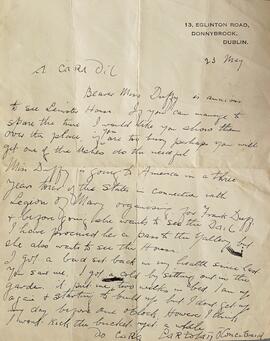 13, EGLINTON ROAD,
DONNYBROOK,
DUBLIN.
23 May
A Cara Dil
Bearer Miss Duffy is anxious
to see Leinster House If you can manage to
spare the time I would like you show them
over the place if you are too busy perhaps you will
get one of the Ushers do the needful
Miss Duffy going to America in a three
year tour of the States in connection with
Legion of Mary organising for Frank Duff
& before going she wants to see the Dail
I have procured her a pass to the Gallery but
she also wants to see the House.
I got a bad set back in my health since last
you saw me, I got a cold by sitting out in the
garden. it put me two weeks in bed I am up
again & starting to build up but I dont get up
any day before one oClock, However I think
I wont Kick the bucket yet a while
Do Cara